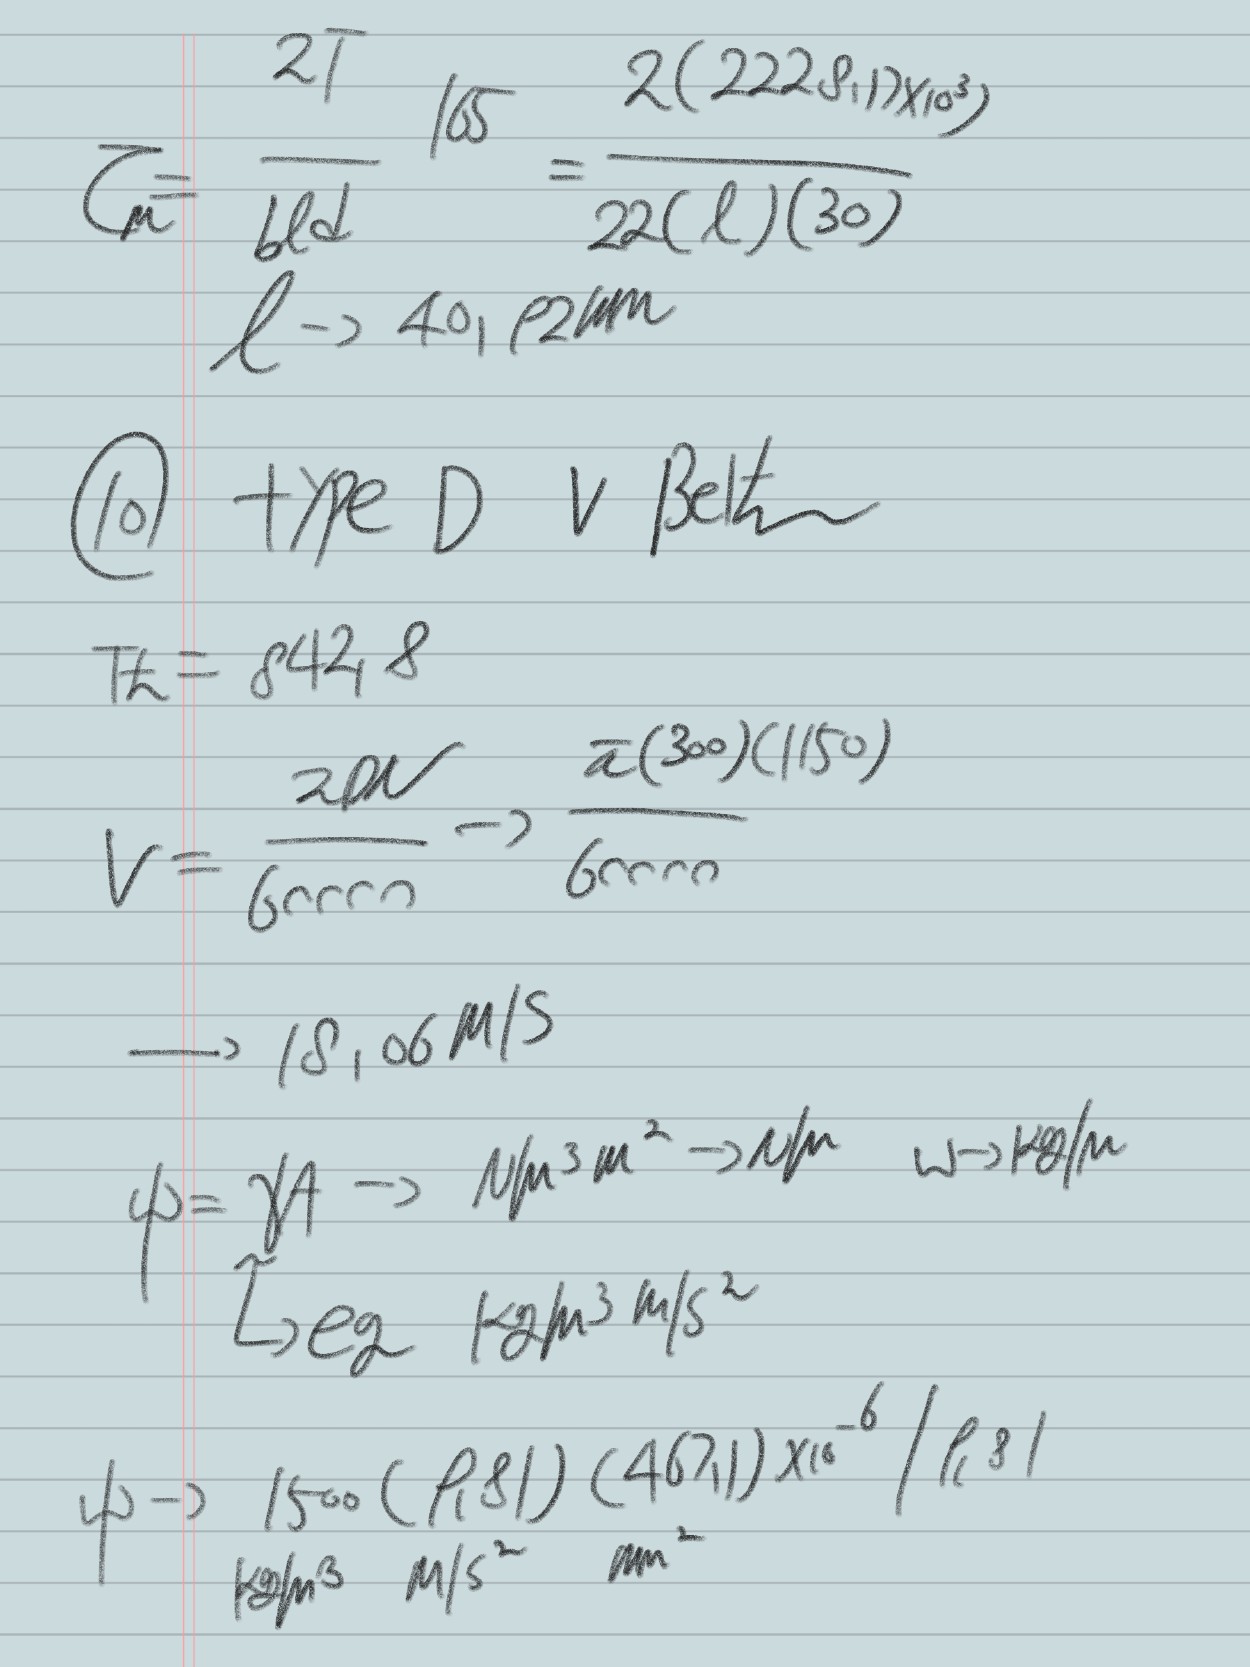 τm = 2T / bld 165 = 2(2228,1)×10³) / 22(l)(30)
l → 40,92mm
⑩ type D V Belt
Tt = 842,8
V = πDN / 60000 → π(300)(1150) / 60000
→ 18,06 M/S
ψ = γA → N/m³ m² → N/m w → kg/m
↳ eg kg/m³ m/s²
ψ → 1500 (9,81) (467,1) ×10⁻⁶ / 9,81
kg/m³ M/s² mm²